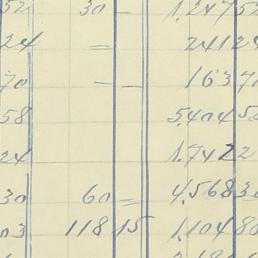 52 30 – 1.247 52
24 = 241 24
70 – – 163 70
58 5.404 58
24 1.742 2
30 60 = 4.568 30
03 118 15 1.104 80